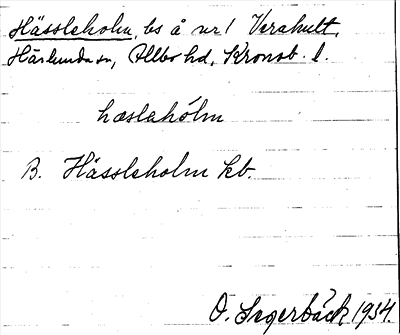 Hässleholm, ls å nr 1 Verahult,
Härlunda sn, Allbo hd, Kronob. l.
hæsləhólm
B. Hässleholm kb.
O. Segerbäck 1934.